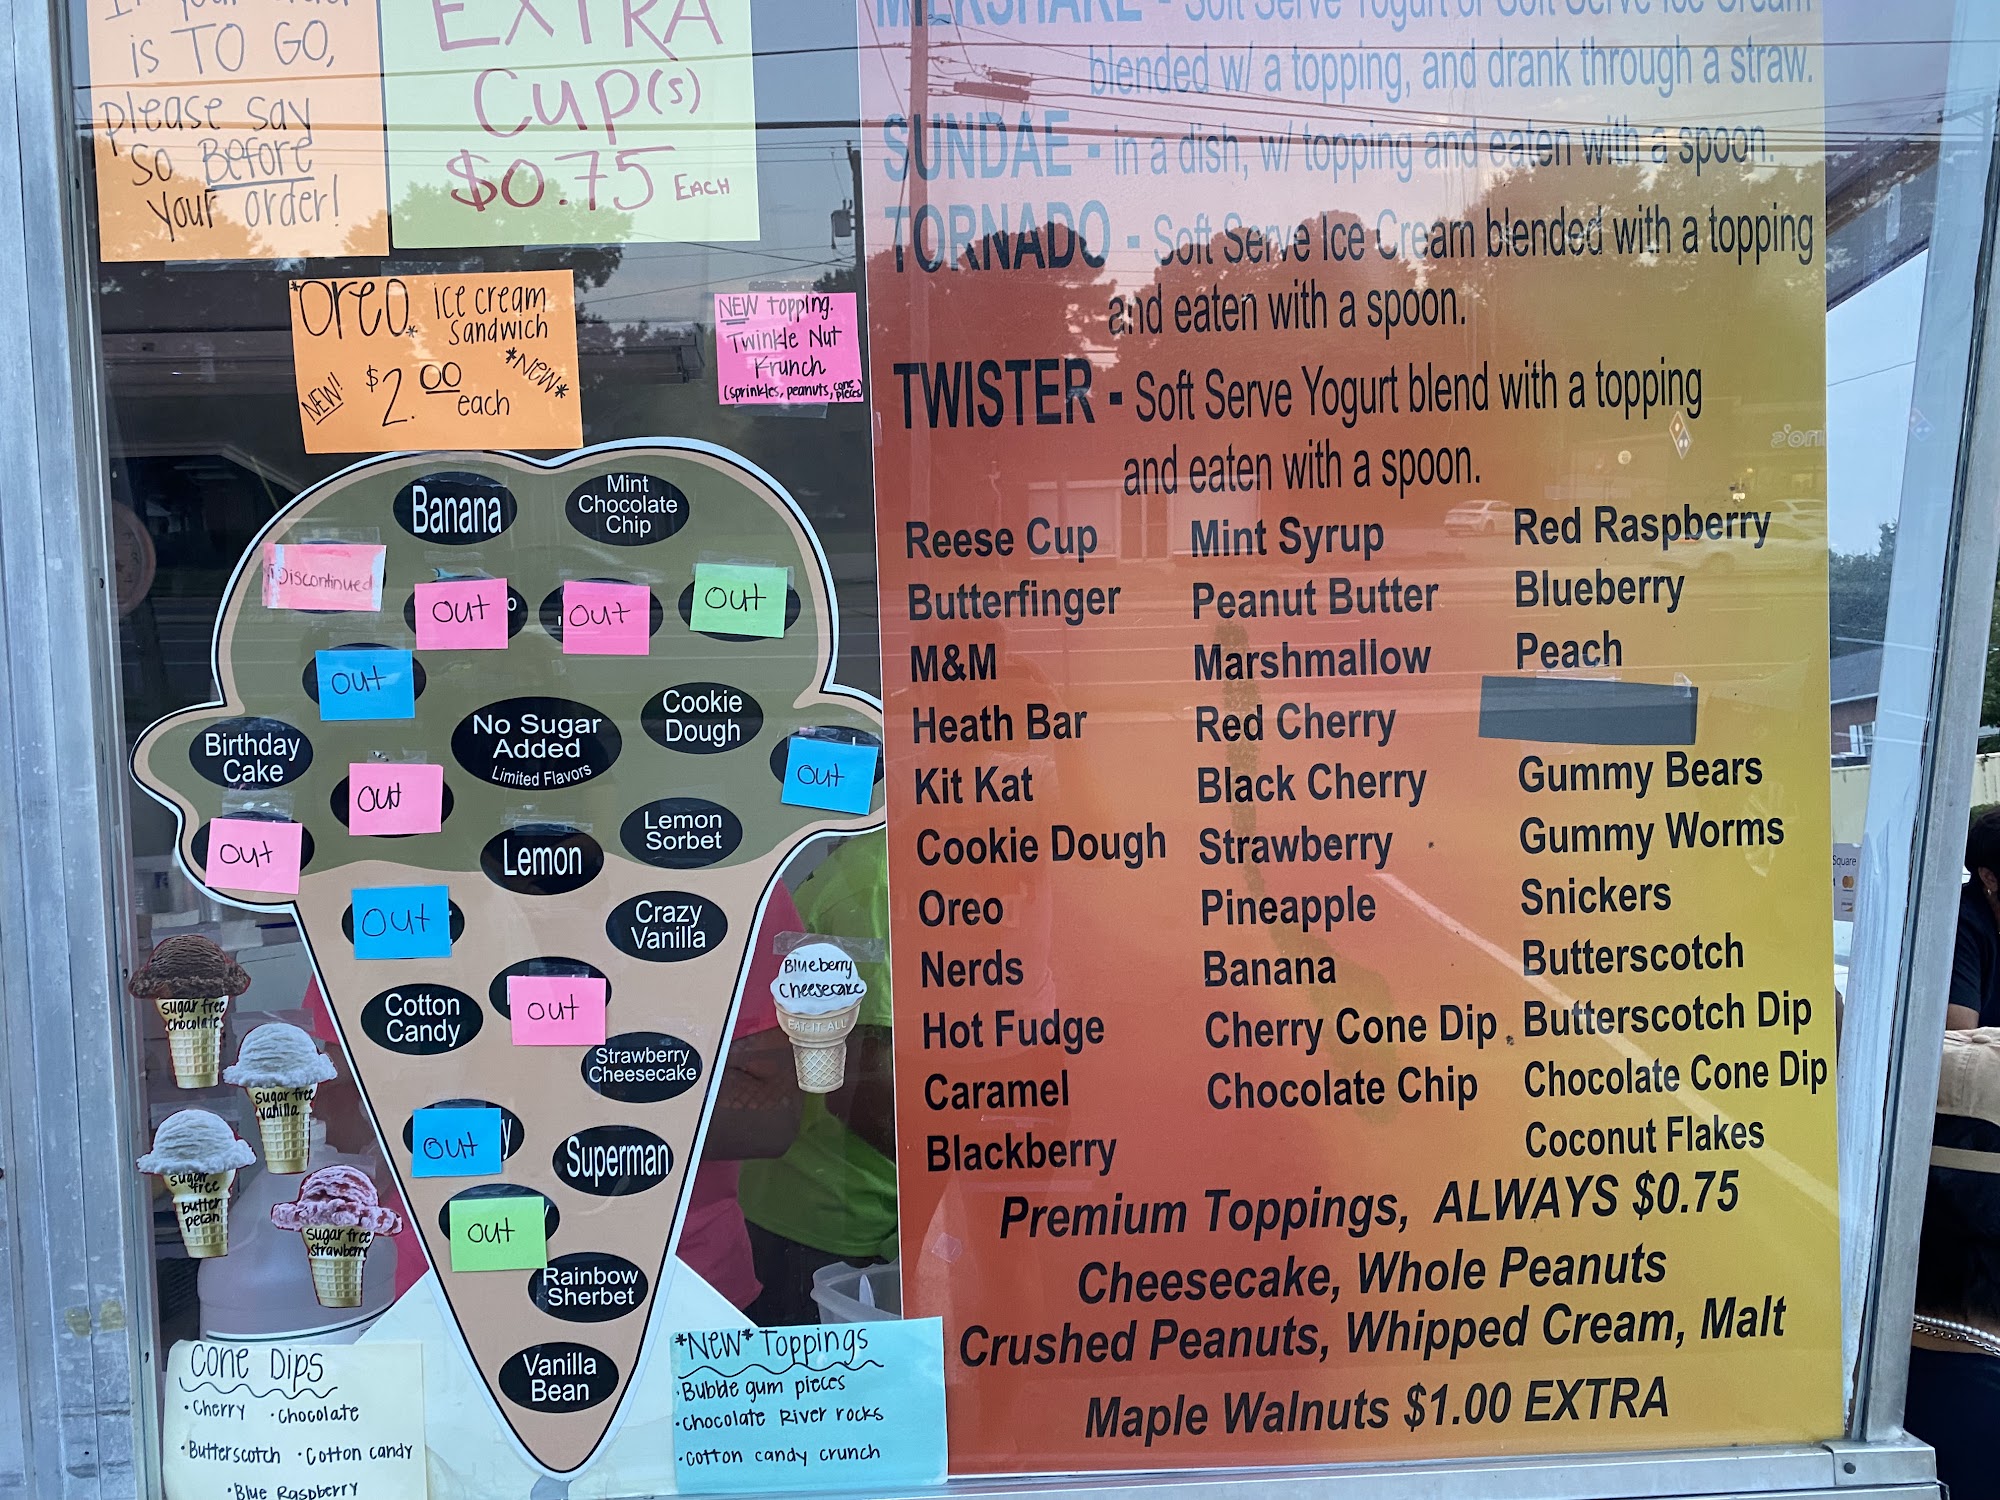 is TO GO,
please say
so Before
your order!
EXTRA
Cup(s)
$0.75 EACH
*Oreo* ice cream
sandwich
NEW! $2.00 each *NEW*
NEW topping.
Twinkle Nut
Krunch
(sprinkles, peanuts, cone pieces)
Banana
Mint
Chocolate
Chip
Discontinued
out
out
out
out
Cookie
Dough
No Sugar
Added
Limited Flavors
Birthday
Cake
out
out
Lemon
Sorbet
out
Lemon
out
Crazy
Vanilla
Cotton
Candy
out
Strawberry
Cheesecake
out
Superman
out
Rainbow
Sherbet
Vanilla
Bean
Blueberry
Cheesecake
EAT-IT-ALL
sugar free
chocolate
sugar free
vanilla
sugar
free
butter
pecan
sugar free
strawberry
Cone Dips
·Cherry ·Chocolate
·Butterscotch ·Cotton candy
·Blue Raspberry
*New* Toppings
·Bubble gum pieces
·Chocolate River rocks
·Cotton candy crunch
MILKSHAKE - Soft Serve Yogurt or Soft Serve Ice Cream
blended w/ a topping, and drank through a straw.
SUNDAE - in a dish, w/ topping and eaten with a spoon.
TORNADO - Soft Serve Ice Cream blended with a topping
and eaten with a spoon.
TWISTER - Soft Serve Yogurt blend with a topping
and eaten with a spoon.
Reese Cup
Butterfinger
M&M
Heath Bar
Kit Kat
Cookie Dough
Oreo
Nerds
Hot Fudge
Caramel
Blackberry
Mint Syrup
Peanut Butter
Marshmallow
Red Cherry
Black Cherry
Strawberry
Pineapple
Banana
Cherry Cone Dip
Chocolate Chip
Red Raspberry
Blueberry
Peach
Gummy Bears
Gummy Worms
Snickers
Butterscotch
Butterscotch Dip
Chocolate Cone Dip
Coconut Flakes
Premium Toppings, ALWAYS $0.75
Cheesecake, Whole Peanuts
Crushed Peanuts, Whipped Cream, Malt
Maple Walnuts $1.00 EXTRA
Square